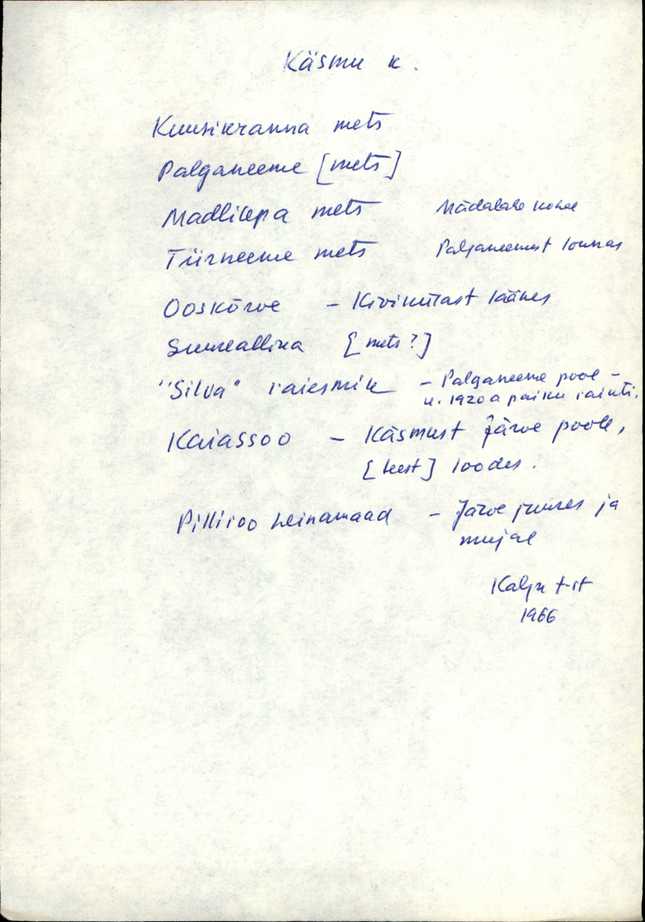 Käsmu k.
Kuusikranna mets
Palganeeme [mets]
Madlilepa mets
Tiirneeme mets Palganeemest lõunas
Ooskõrve - Kivinukast läänes
Suureallika [mets?]
"Silva" raiesmik - Palganeeme pool -
u. 1920 a paiku raiuti.
Kaiassoo - Käsmust Järve poole,
[teest] loodes.
Pilliroo heinamaad - Järve juures ja
mujal
Kalju
1966